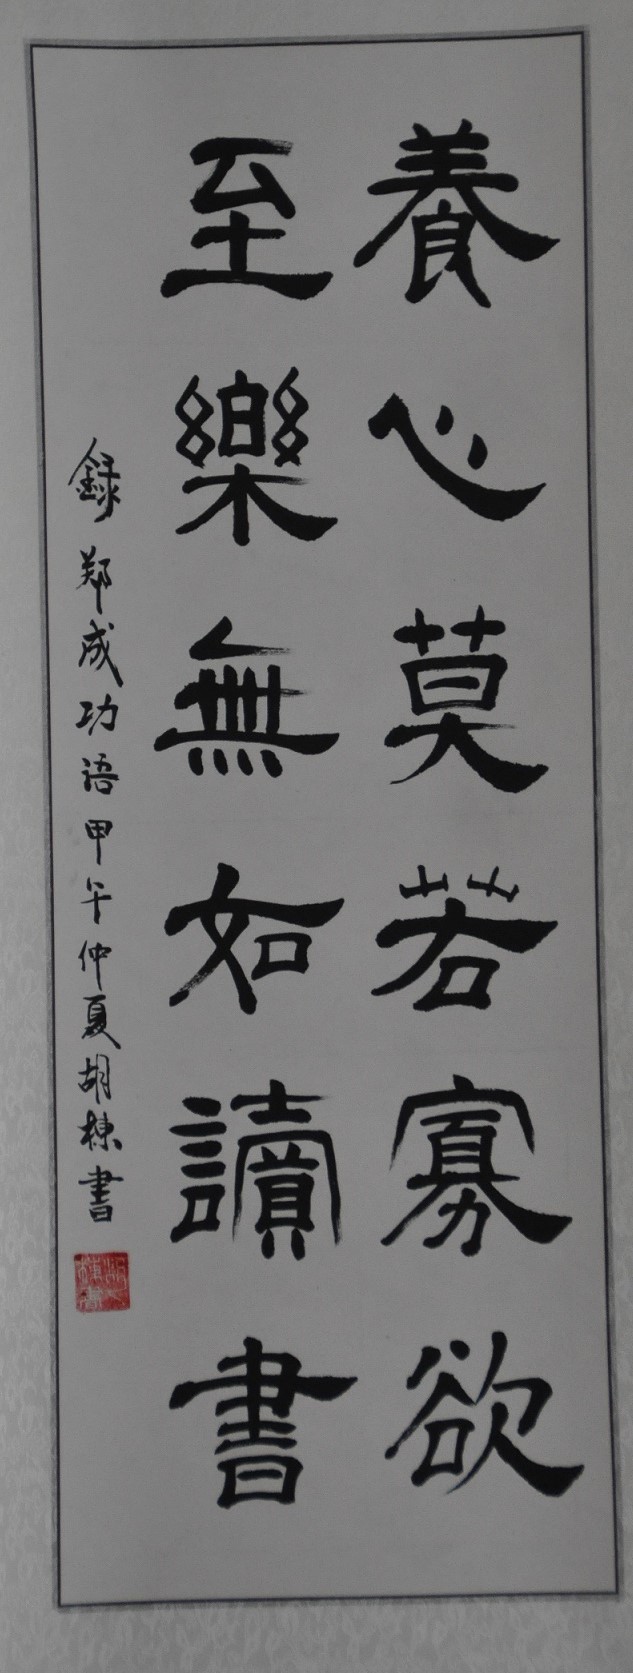 養心莫若寡欲
至樂無如讀書
録郑成功语甲午仲夏胡棟書